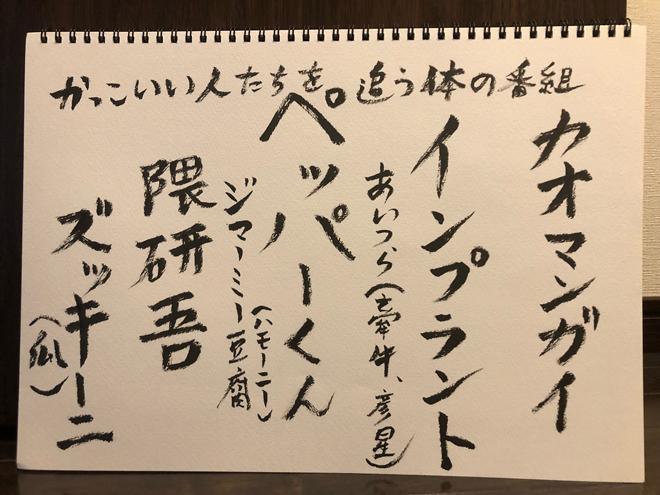 かっこいい人たちを追う体の番組
カオマンガイ
インプラント
あいつら(牽牛、彦星)
ペッパーくん
(ハモーニー)
ジマーミー豆腐
隈研吾
ズッキーニ
(瓜)